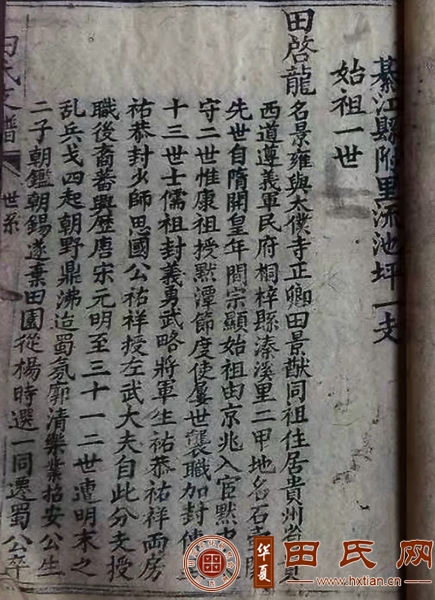 綦江縣附里流池坪一支
始祖一世
田啓龍
名景雍與太僕寺正卿田景猷同祖住居貴州省貴
西道遵義軍民府桐梓縣溱溪里二甲地名石
先世自隋開皇年間宗顯始祖由京兆入官黔中
守二世惟康祖授黔潭節度使屢世襲職加封
十三世士儒祖封義勇武略將軍生祐恭祐祥兩房
祐恭封少師思國公祐祥授左武大夫自此分支授
職後裔蕃興歷唐宋元明至三十一二世遭明末之
乱兵戈四起朝野鼎沸迨蜀氛廓清樂業招安公生
二子朝鑑朝錫遂棄田園從楊時選一同遷蜀公卒
田氏支譜
世系
華夏
田氏网
www.hxtian.cn